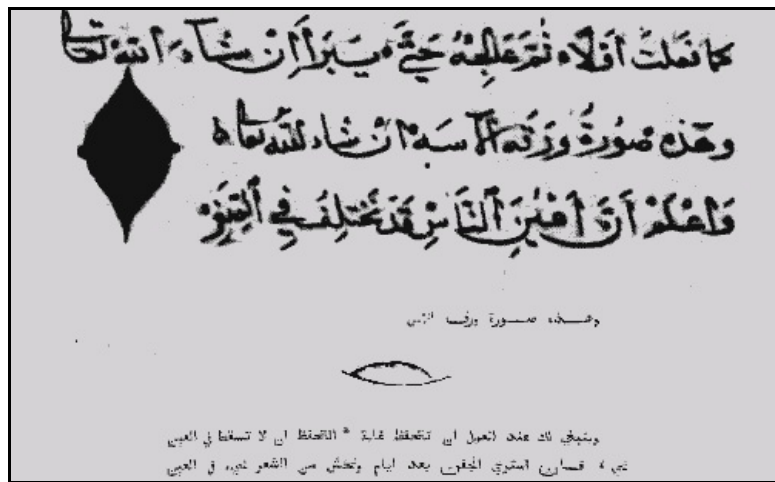 كما فعلت أولاه ثم عالجه حتى يبرأ إن شاء الله تعالى
وهذه صورة ورقه الآسيه ان شاء الله تعالى
واعلم أن أعين الناس قد تختلف في
وهذه صورة ورقة الآس
وينبغي لك عند العمل ان تتحفظ غاية التحفظ ان لا تسقط في العين
شيء فان استرخى الجفن بعد ايام ونخش من الشعر شيء في العين